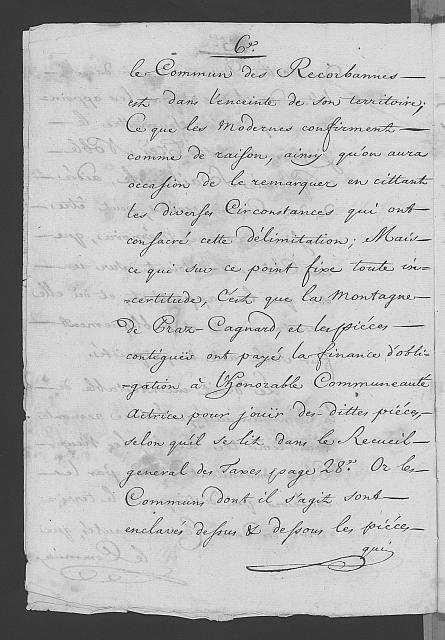 6.º
le Commun des Recorbannes —
est dans l'enceinte de son territoire;
Ce que les Modernes confirment —
comme de raison, ainsy qu'on aura
occasion de le remarquer en cittant
les diverses Circonstances qui ont
consacré cette délimitation; Mais
ce qui sur ce point fixe toute in-
-certitude, c'est que la Montagne
de Praz-Cagnard, et les piéces —
contigües ont payé la finance d'obli-
-gation à l'honorable Communeauté
Actrice pour joüir des dittes piéces
selon qu'il se lit dans le Recueil
general des Taxes page 28.e Or les
Communs dont il s'agit sont —
enclavés dessus & dessous les piéces
qui